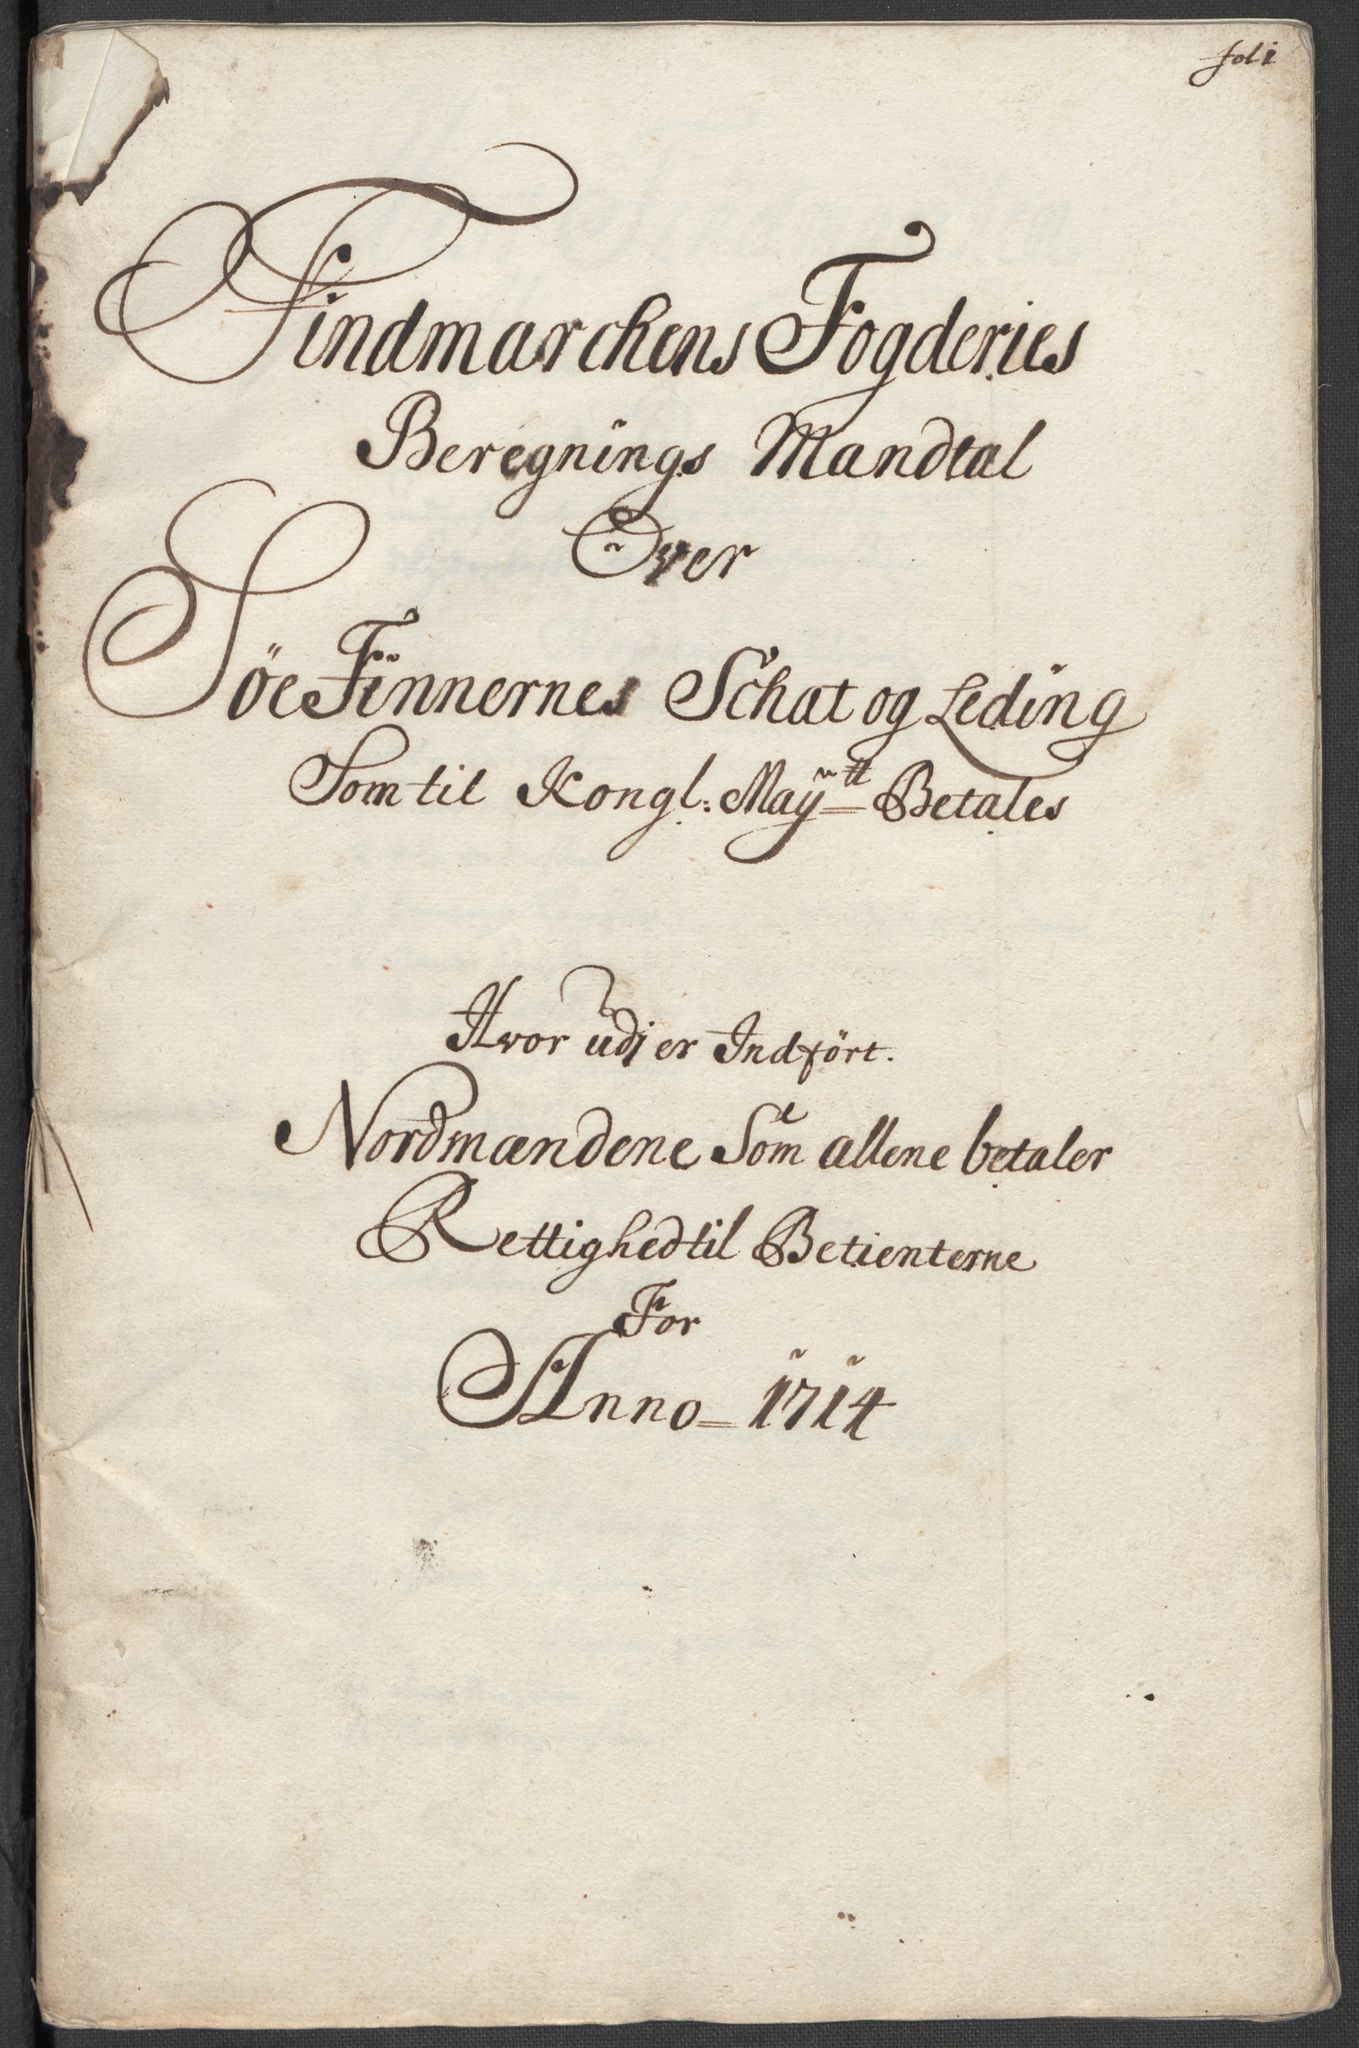 fol 1
Findmarckens Fogderies
Beregnings Mandtal
Over
Söe Finnernes Schat og Leding
Som til Kongl: Maÿtt Betales
Hvor udj er Indfört.
Nordmændene Som allene betaler
Rettighed til Betienterne
For
Anno 1714